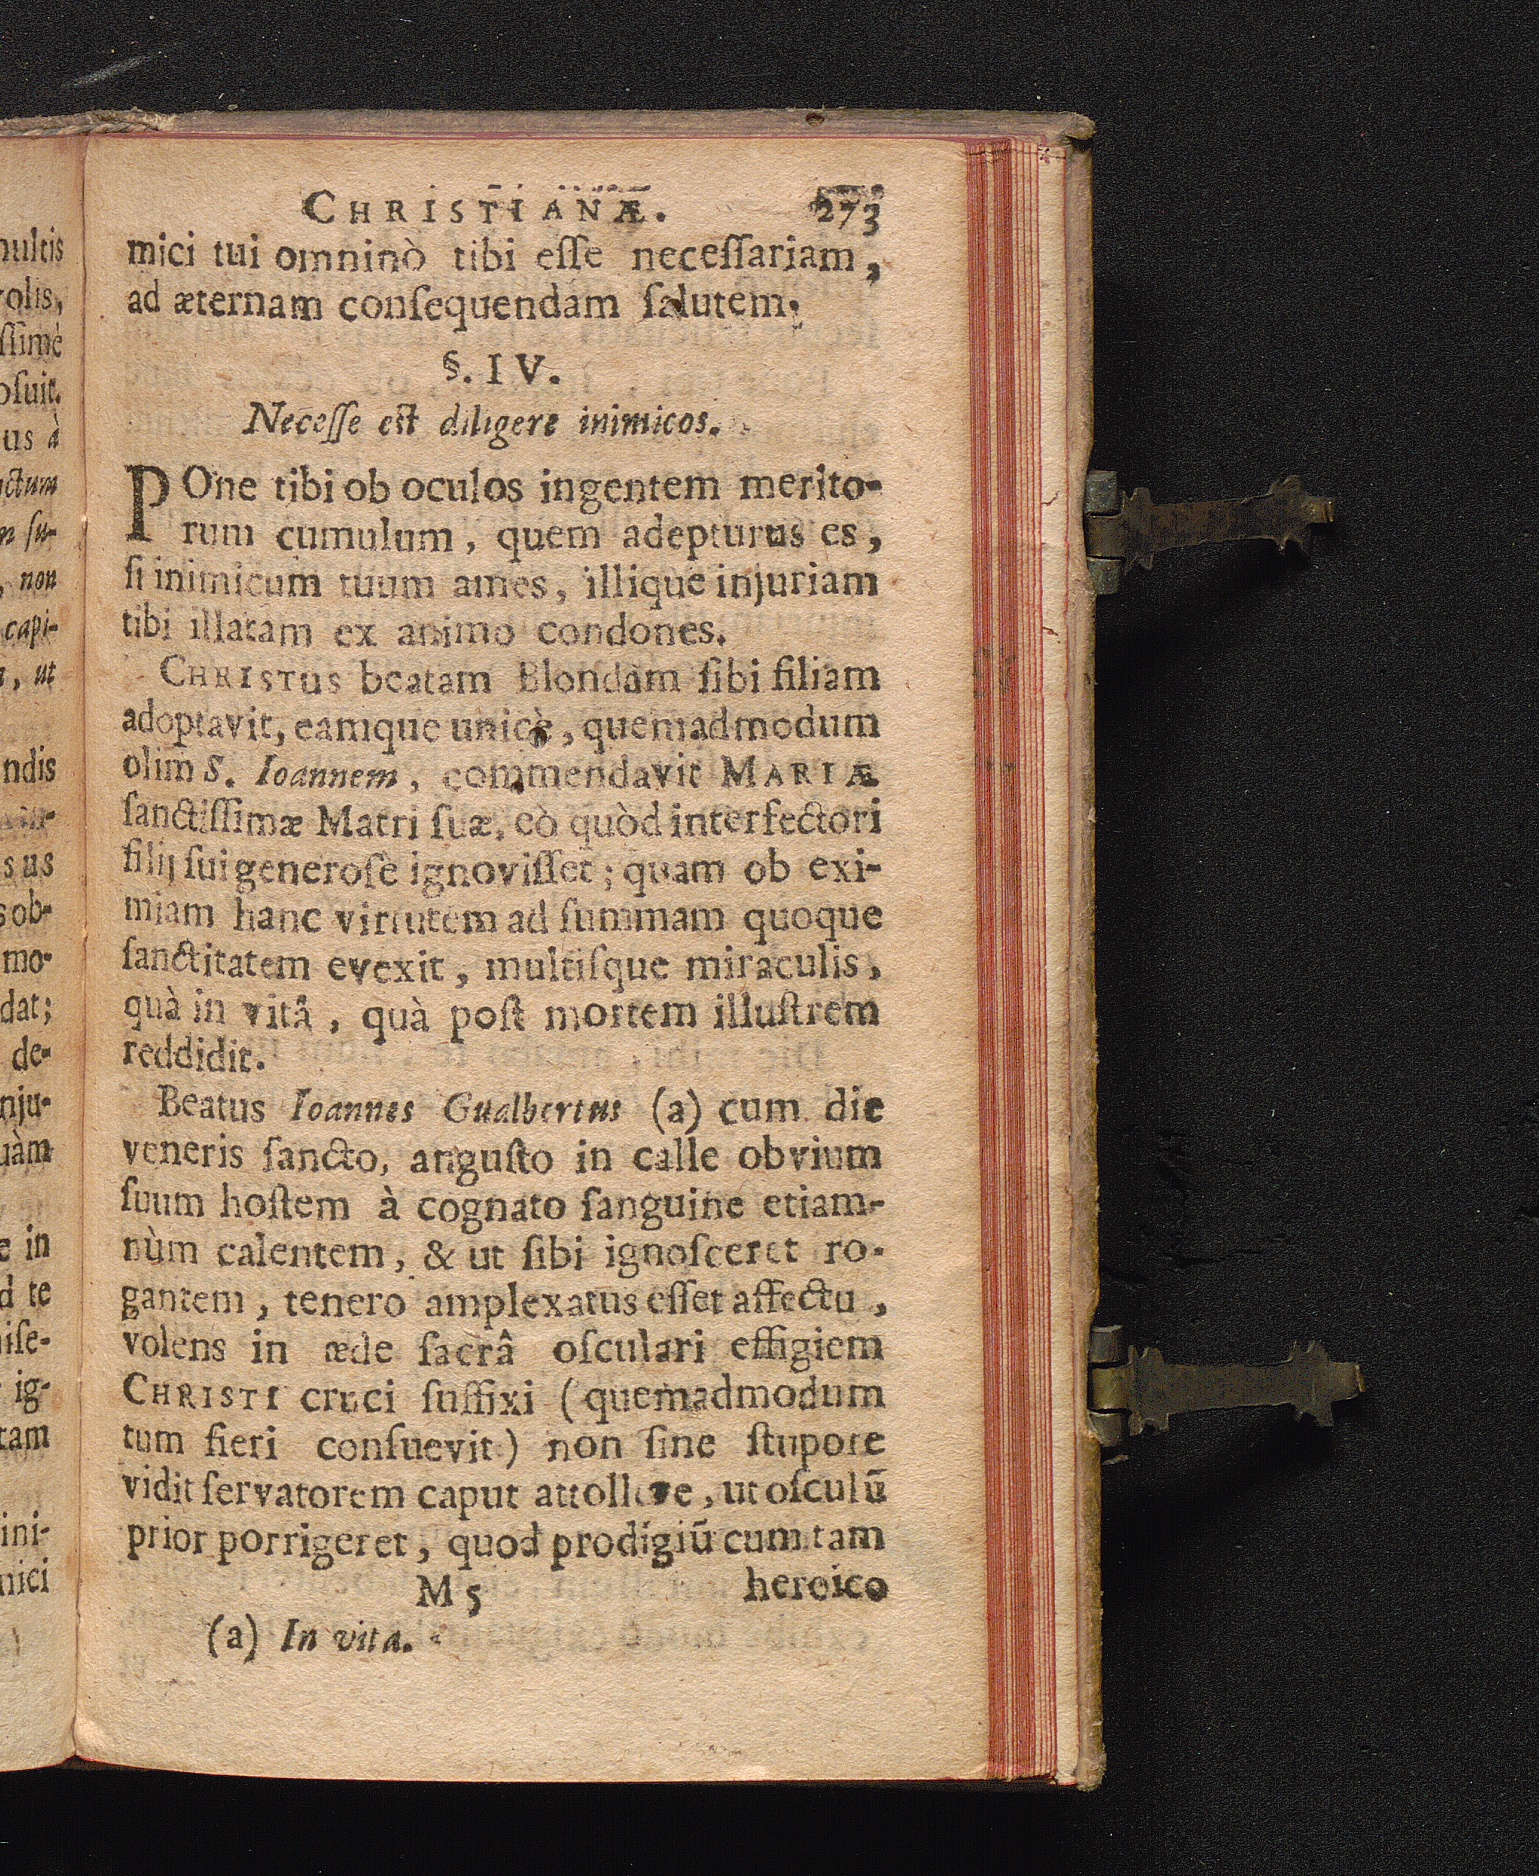 CHRISTIANÆ. 273
mici tui omninò tibi eſſe neceſſariam,
ad æternam conſequendam ſalutem.
§. IV.
Neceſſe eſt diligere inimicos.
POne tibi ob oculos ingentem merito-
rum cumulum, quem adepturus es,
ſi inimicum tuum ames, illique injuriam
tibi illatam ex animo condones.
CHRISTUS beatam Blondam ſibi filiam
adoptavit, eamque unicè, quemadmodum
olim S. Ioannem, commendavit MARIÆ
ſanctiſſimæ Matri ſuæ, eò quòd interfectori
filij ſui generoſè ignoviſſet; quam ob exi-
miam hanc virtutem ad ſummam quoque
ſanctitatem evexit, multiſque miraculis,
quà in vitâ, quà poſt mortem illuſtrem
reddidit.
Beatus Ioannes Gualbertus (a) cum die
veneris ſancto, anguſto in calle obvium
ſuum hoſtem à cognato ſanguine etiam-
nùm calentem, & ut ſibi ignoſceret ro-
gantem, tenero amplexatus eſſet affectu,
volens in æde ſacrâ oſculari effigiem
CHRISTI cruci ſuffixi (quemadmodum
tum fieri conſuevit) non ſine ſtupore
vidit ſervatorem caput attollere, ut oſculū
prior porrigeret, quod prodigiū cum tam
M 5 heroico
(a) In vita.
multis
rolis,
ſſimè
oſuit.
us à
ctum
n ſu-
, non
capi-
, ut
ndis
sus
sob-
mo-
dat;
de-
nju-
uàm
e in
d te
iſe-
ig-
tam
ini-
mici